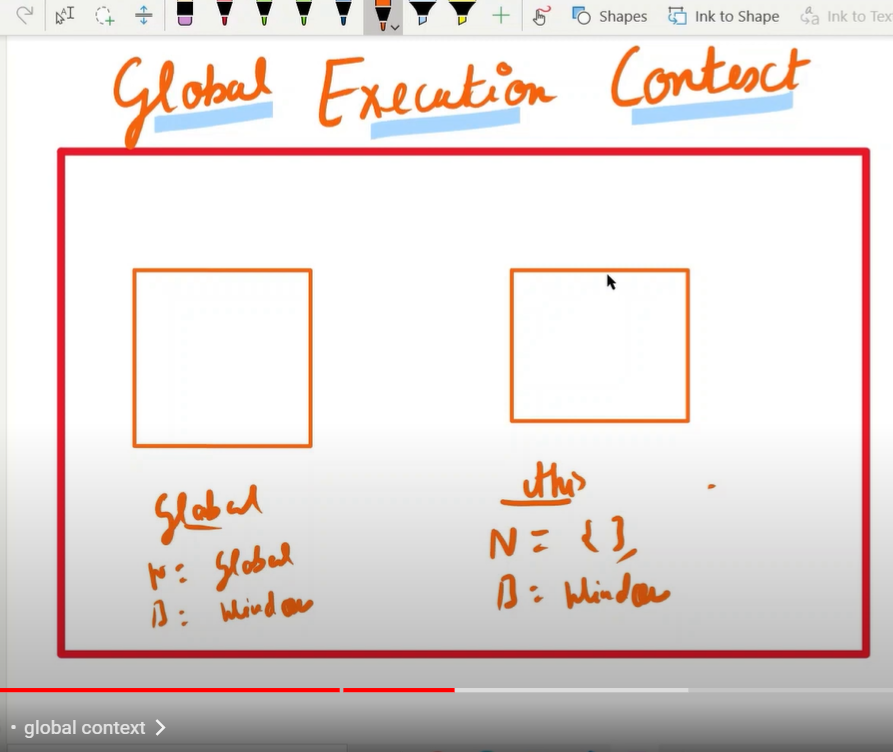 Shapes Ink to Shape Ink to Tex
Global Execution Context
Global
N: Global
B: Window
this
N = { }
B: Window
• global context